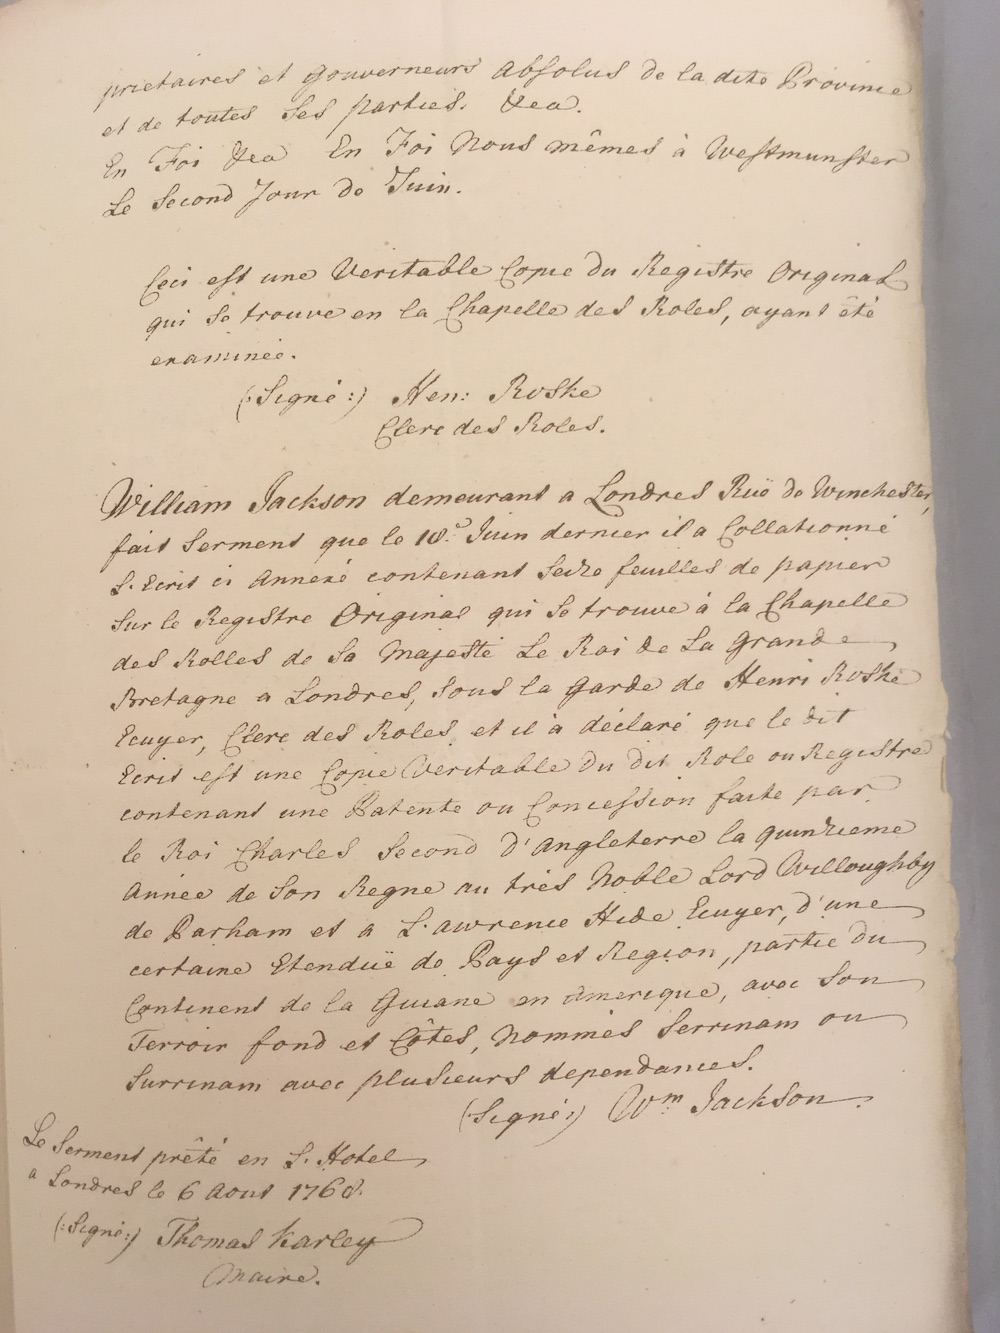 prietaires et Gouverneurs Absolus de la dite Province
et de toutes Ses parties. &ea.
En Foi &ea En Foi Nous mêmes à Westmunster
Le Second Jour de Juin.
Ceci est une Veritable Copie du Registre Original
qui se trouve en la Chapelle des Roles, ayant été
examinée.
(:Signé:) Hen: Roske
Clerc des Roles.
William Jackson demeurant a Londres Ruë de Winchester,
fait Serment que le 18.e Juin dernier il a Collationné
L'Ecrit ci Annexé contenant Seize feuilles de papier
Sur le Registre Original qui se trouve à la Chapelle
des Rolles de Sa Majesté Le Roi de La Grande
Bretagne a Londres, Sous la Garde de Henri Roske
Ecuyer, Clerc des Roles, et il à déclaré que le dit
Ecrit est une Copie Veritable du dit Role ou Registre
contenant une Patente ou Concession faite par
le Roi Charles Second d'Angleterre la quinzieme
Année de Son Regne au très Noble Lord Willoughby
de Parham et a Lawrence Hide Ecuyer, d'une
certaine Etenduë de Pays et Region, partie du
Continent de la Guiane en Amerique, avec Son
Terroir fond et Côtes, Nommés Serrinam ou
Surrinam avec plusieurs dependances.
(Signé:) Wm Jackson.
Le Serment prêté en L'Hotel
a Londres le 6 Aout 1768.
(:Signé:) Thomas Karley
Maire.